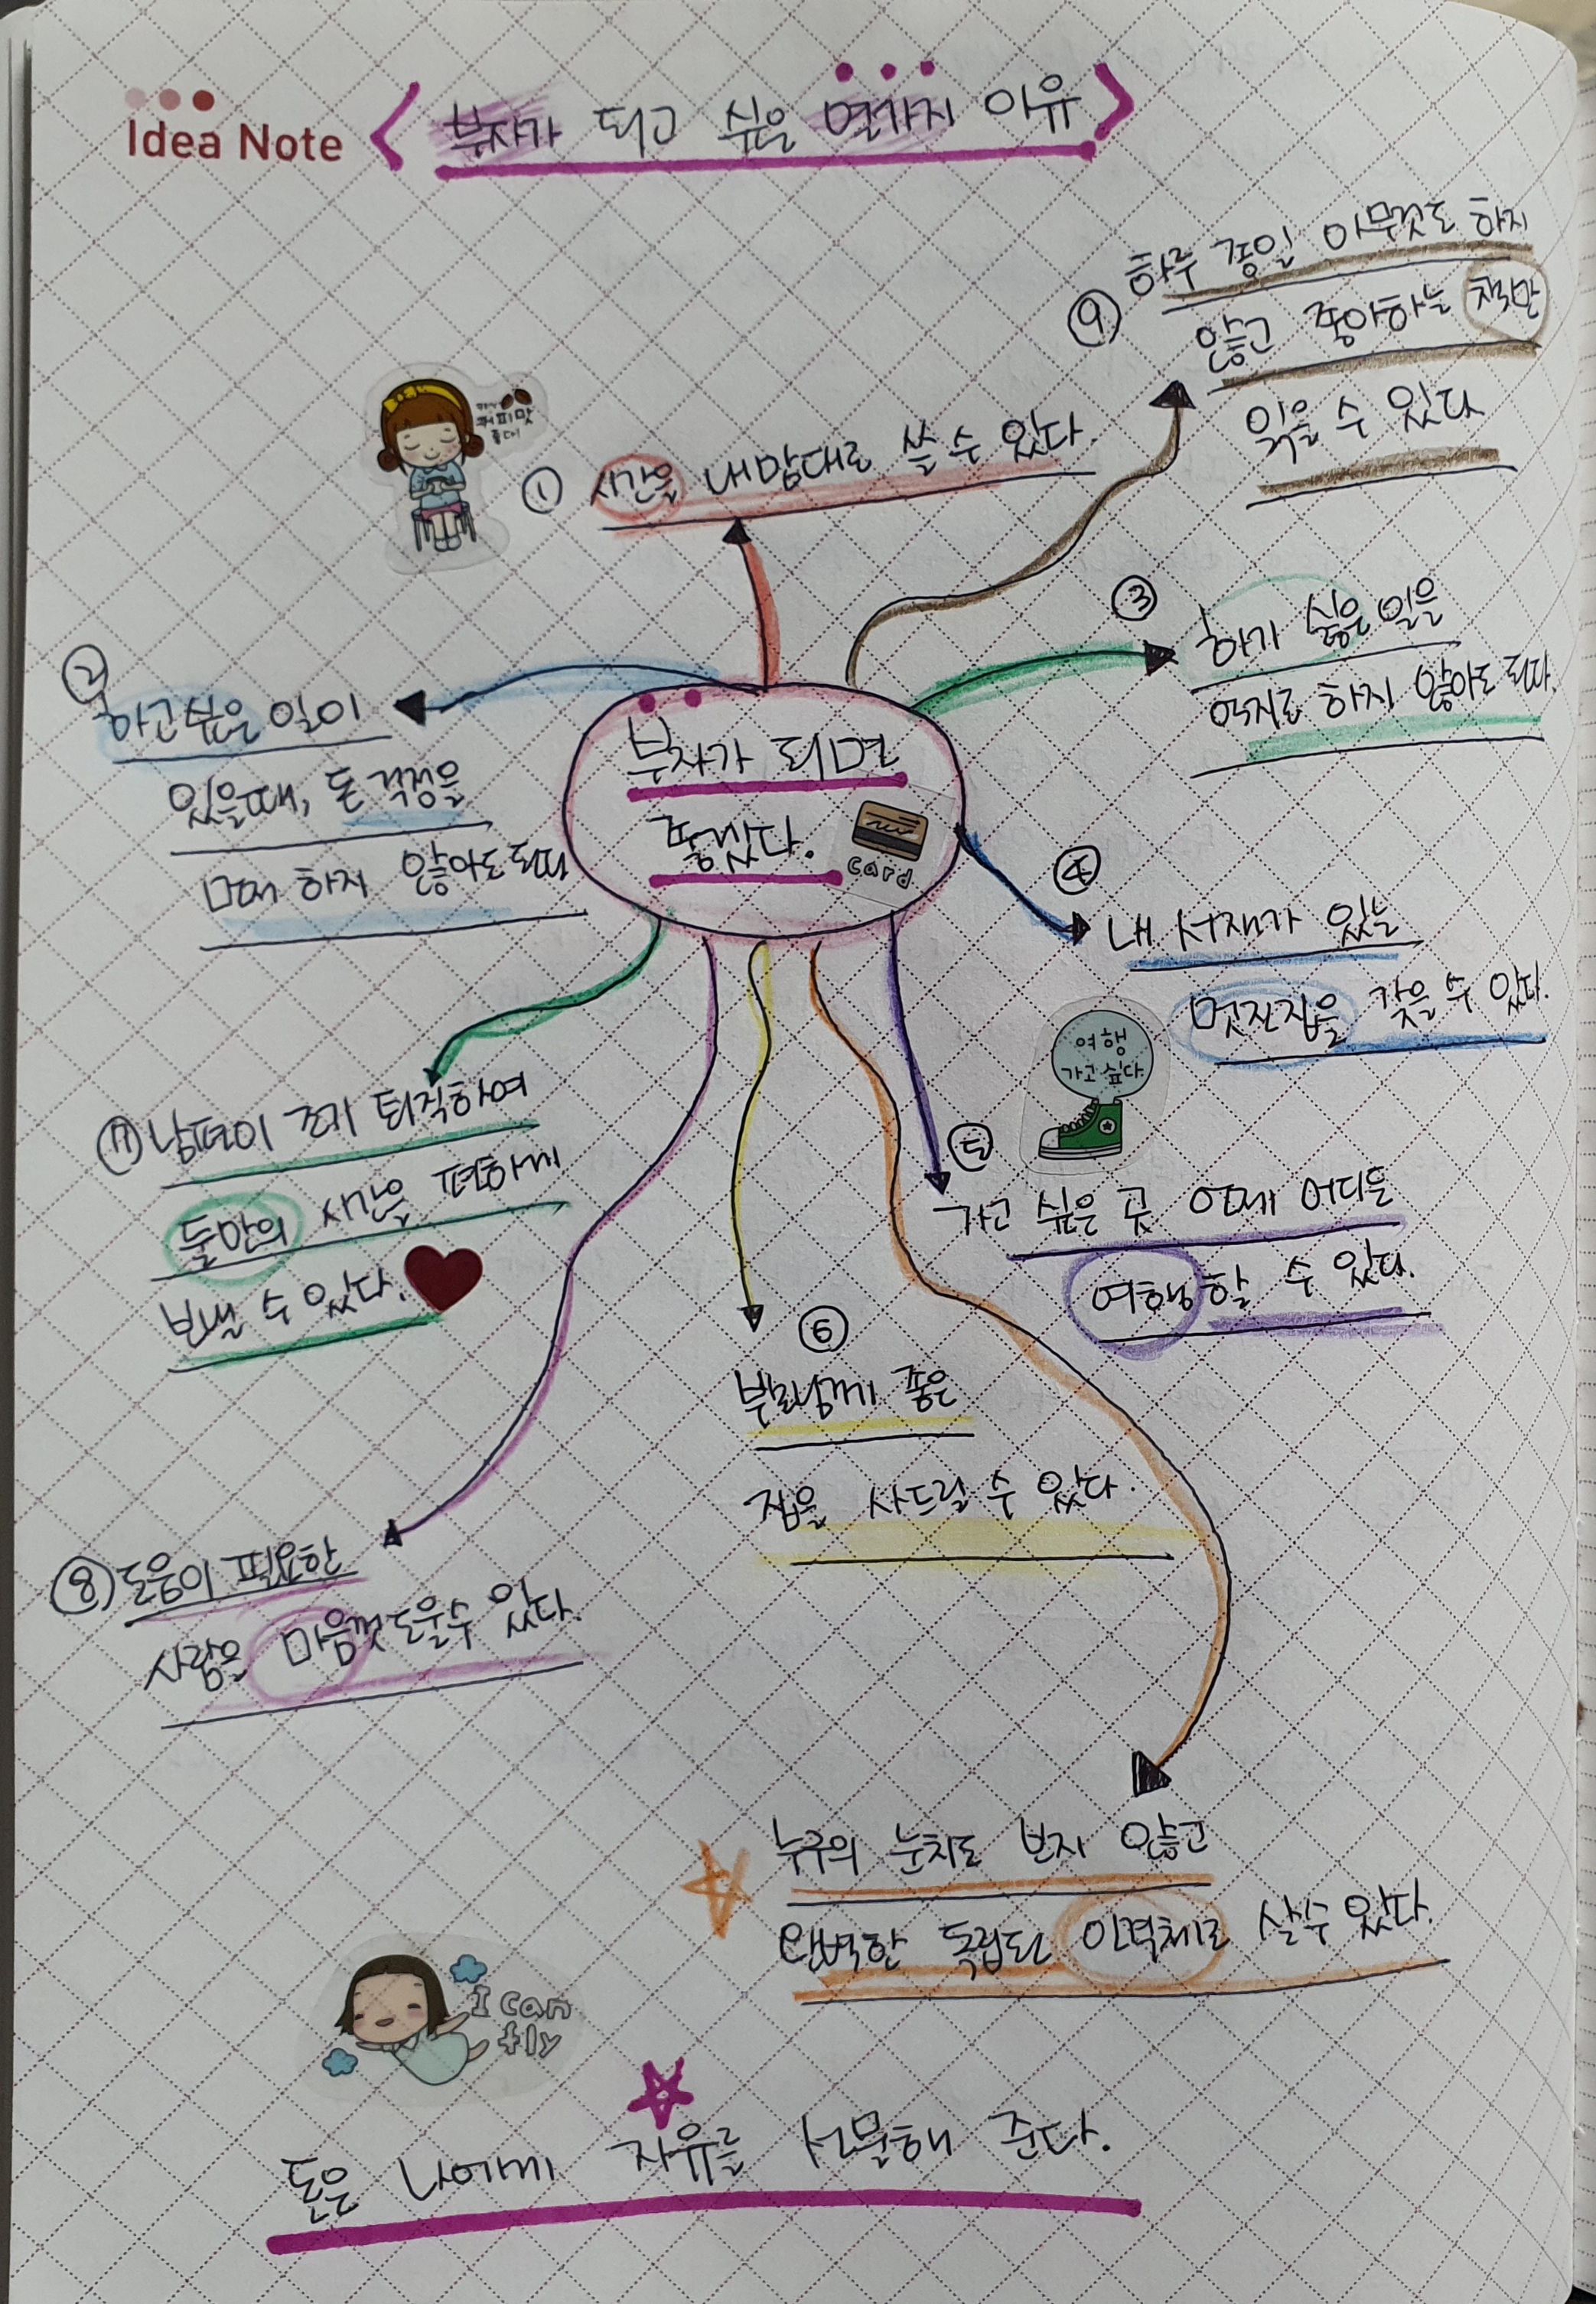 Idea Note
< 부자가 되고 싶은 열가지 이유 >
⑨ 하루 종일 아무것도 하지
않고 좋아하는 책만
읽을 수 있다
커피맛
좋다!
① 시간을 내맘대로 쓸 수 있다.
③ 하기 싫은 일을
억지로 하지 않아도 된다.
② 하고싶은 일이
있을때, 돈 걱정을
먼저 하지 않아도 된다
부자가 되면
좋겠다.
card
④ 내 서재가 있는
멋진집을 갖을 수 있다.
여행
가고 싶다
⑤ 가고 싶은 곳 언제 어디든
여행할 수 있다.
⑦ 남편이 조기 퇴직하여
둘만의 시간을 편하게
보낼 수 있다.
⑥
부모님께 좋은
집을 사드릴 수 있다.
⑧ 도움이 필요한
사람을 마음껏 도울수 있다.
누구의 눈치도 보지 않고
완벽한 독립된 인격체로 살 수 있다.
I can
fly
돈은 나에게 자유를 선물해 준다.